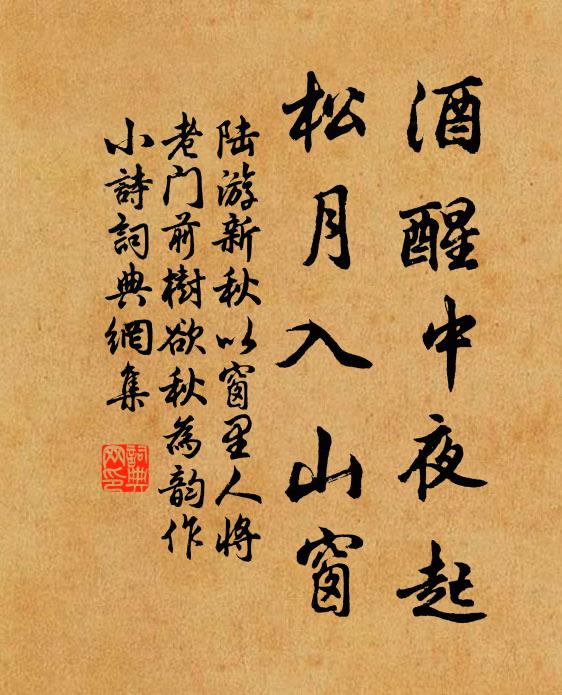 酒醒中夜起
松月入山窗
陆游新秋以窗里人将
老门前樹欲秋為韵作
小詩詞典網集
詞典
网印